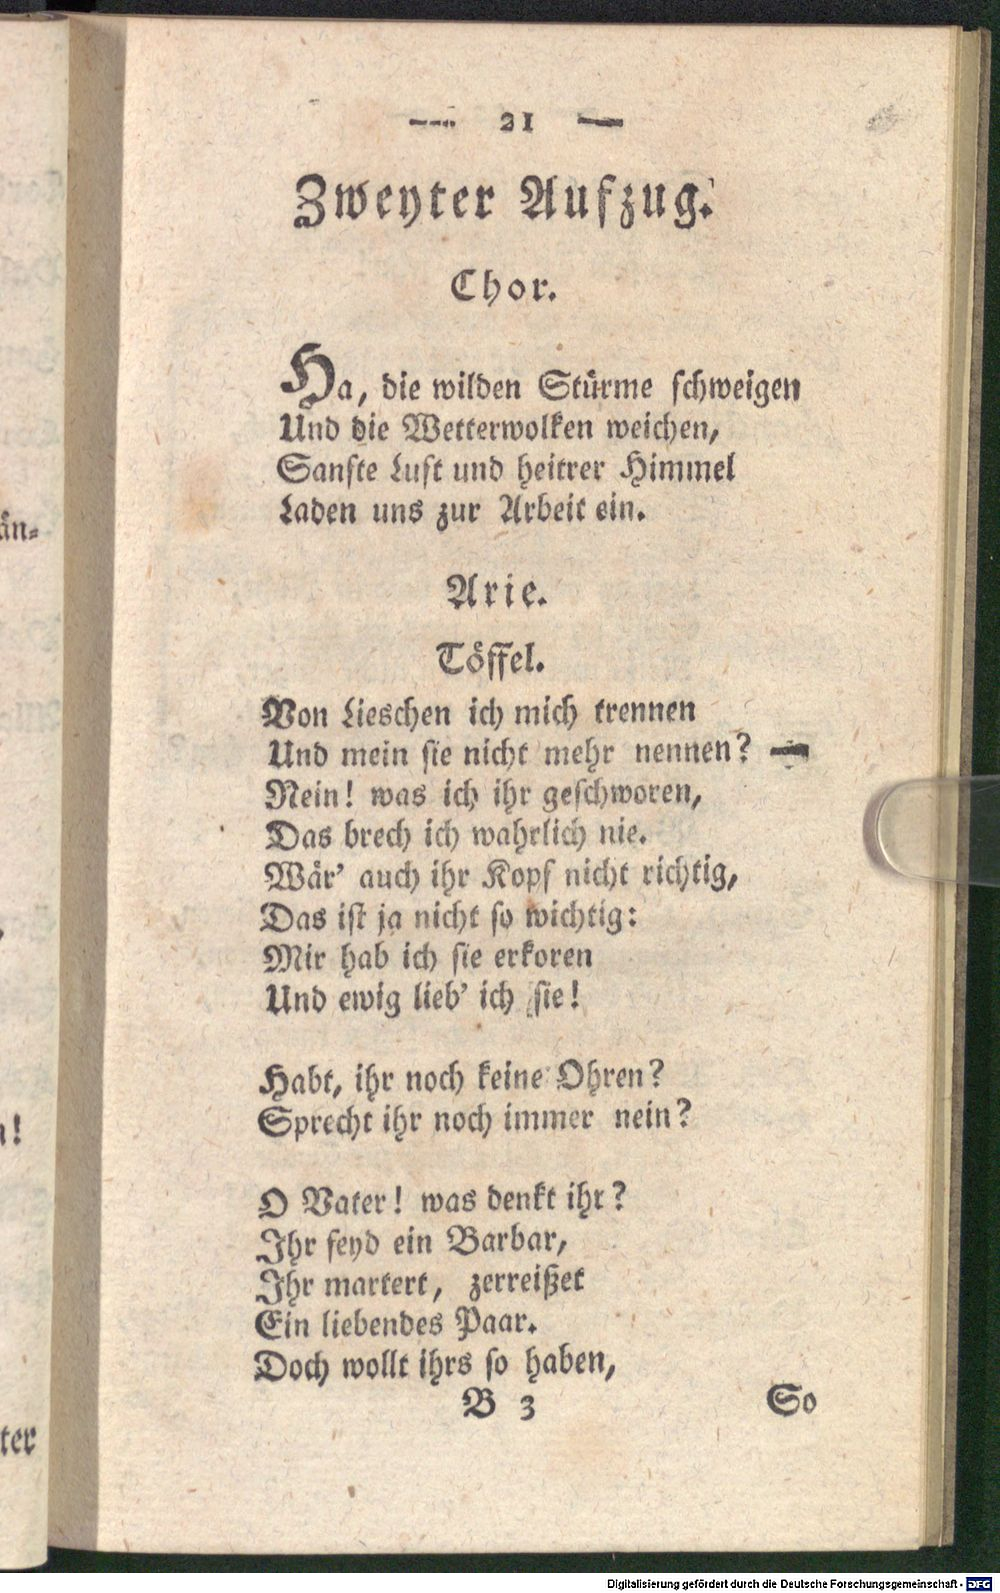 — 21 —
Zweyter Aufzug.
Chor.
Ha, die wilden Stürme schweigen
Und die Wetterwolken weichen,
Sanfte Luft und heitrer Himmel
Laden uns zur Arbeit ein.
Arie.
Töffel.
Von Lieschen ich mich trennen
Und mein sie nicht mehr nennen? —
Nein! was ich ihr geschworen,
Das brech ich wahrlich nie.
Wär' auch ihr Kopf nicht richtig,
Das ist ja nicht so wichtig:
Mir hab ich sie erkoren
Und ewig lieb' ich sie!
Habt, ihr noch keine Ohren?
Sprecht ihr noch immer nein?
O Vater! was denkt ihr?
Ihr seyd ein Barbar,
Ihr martert, zerreißet
Ein liebendes Paar.
Doch wollt ihrs so haben,
B 3 So
än-
n!
ter
Digitalisierung gefördert durch die Deutsche Forschungsgemeinschaft - DFG